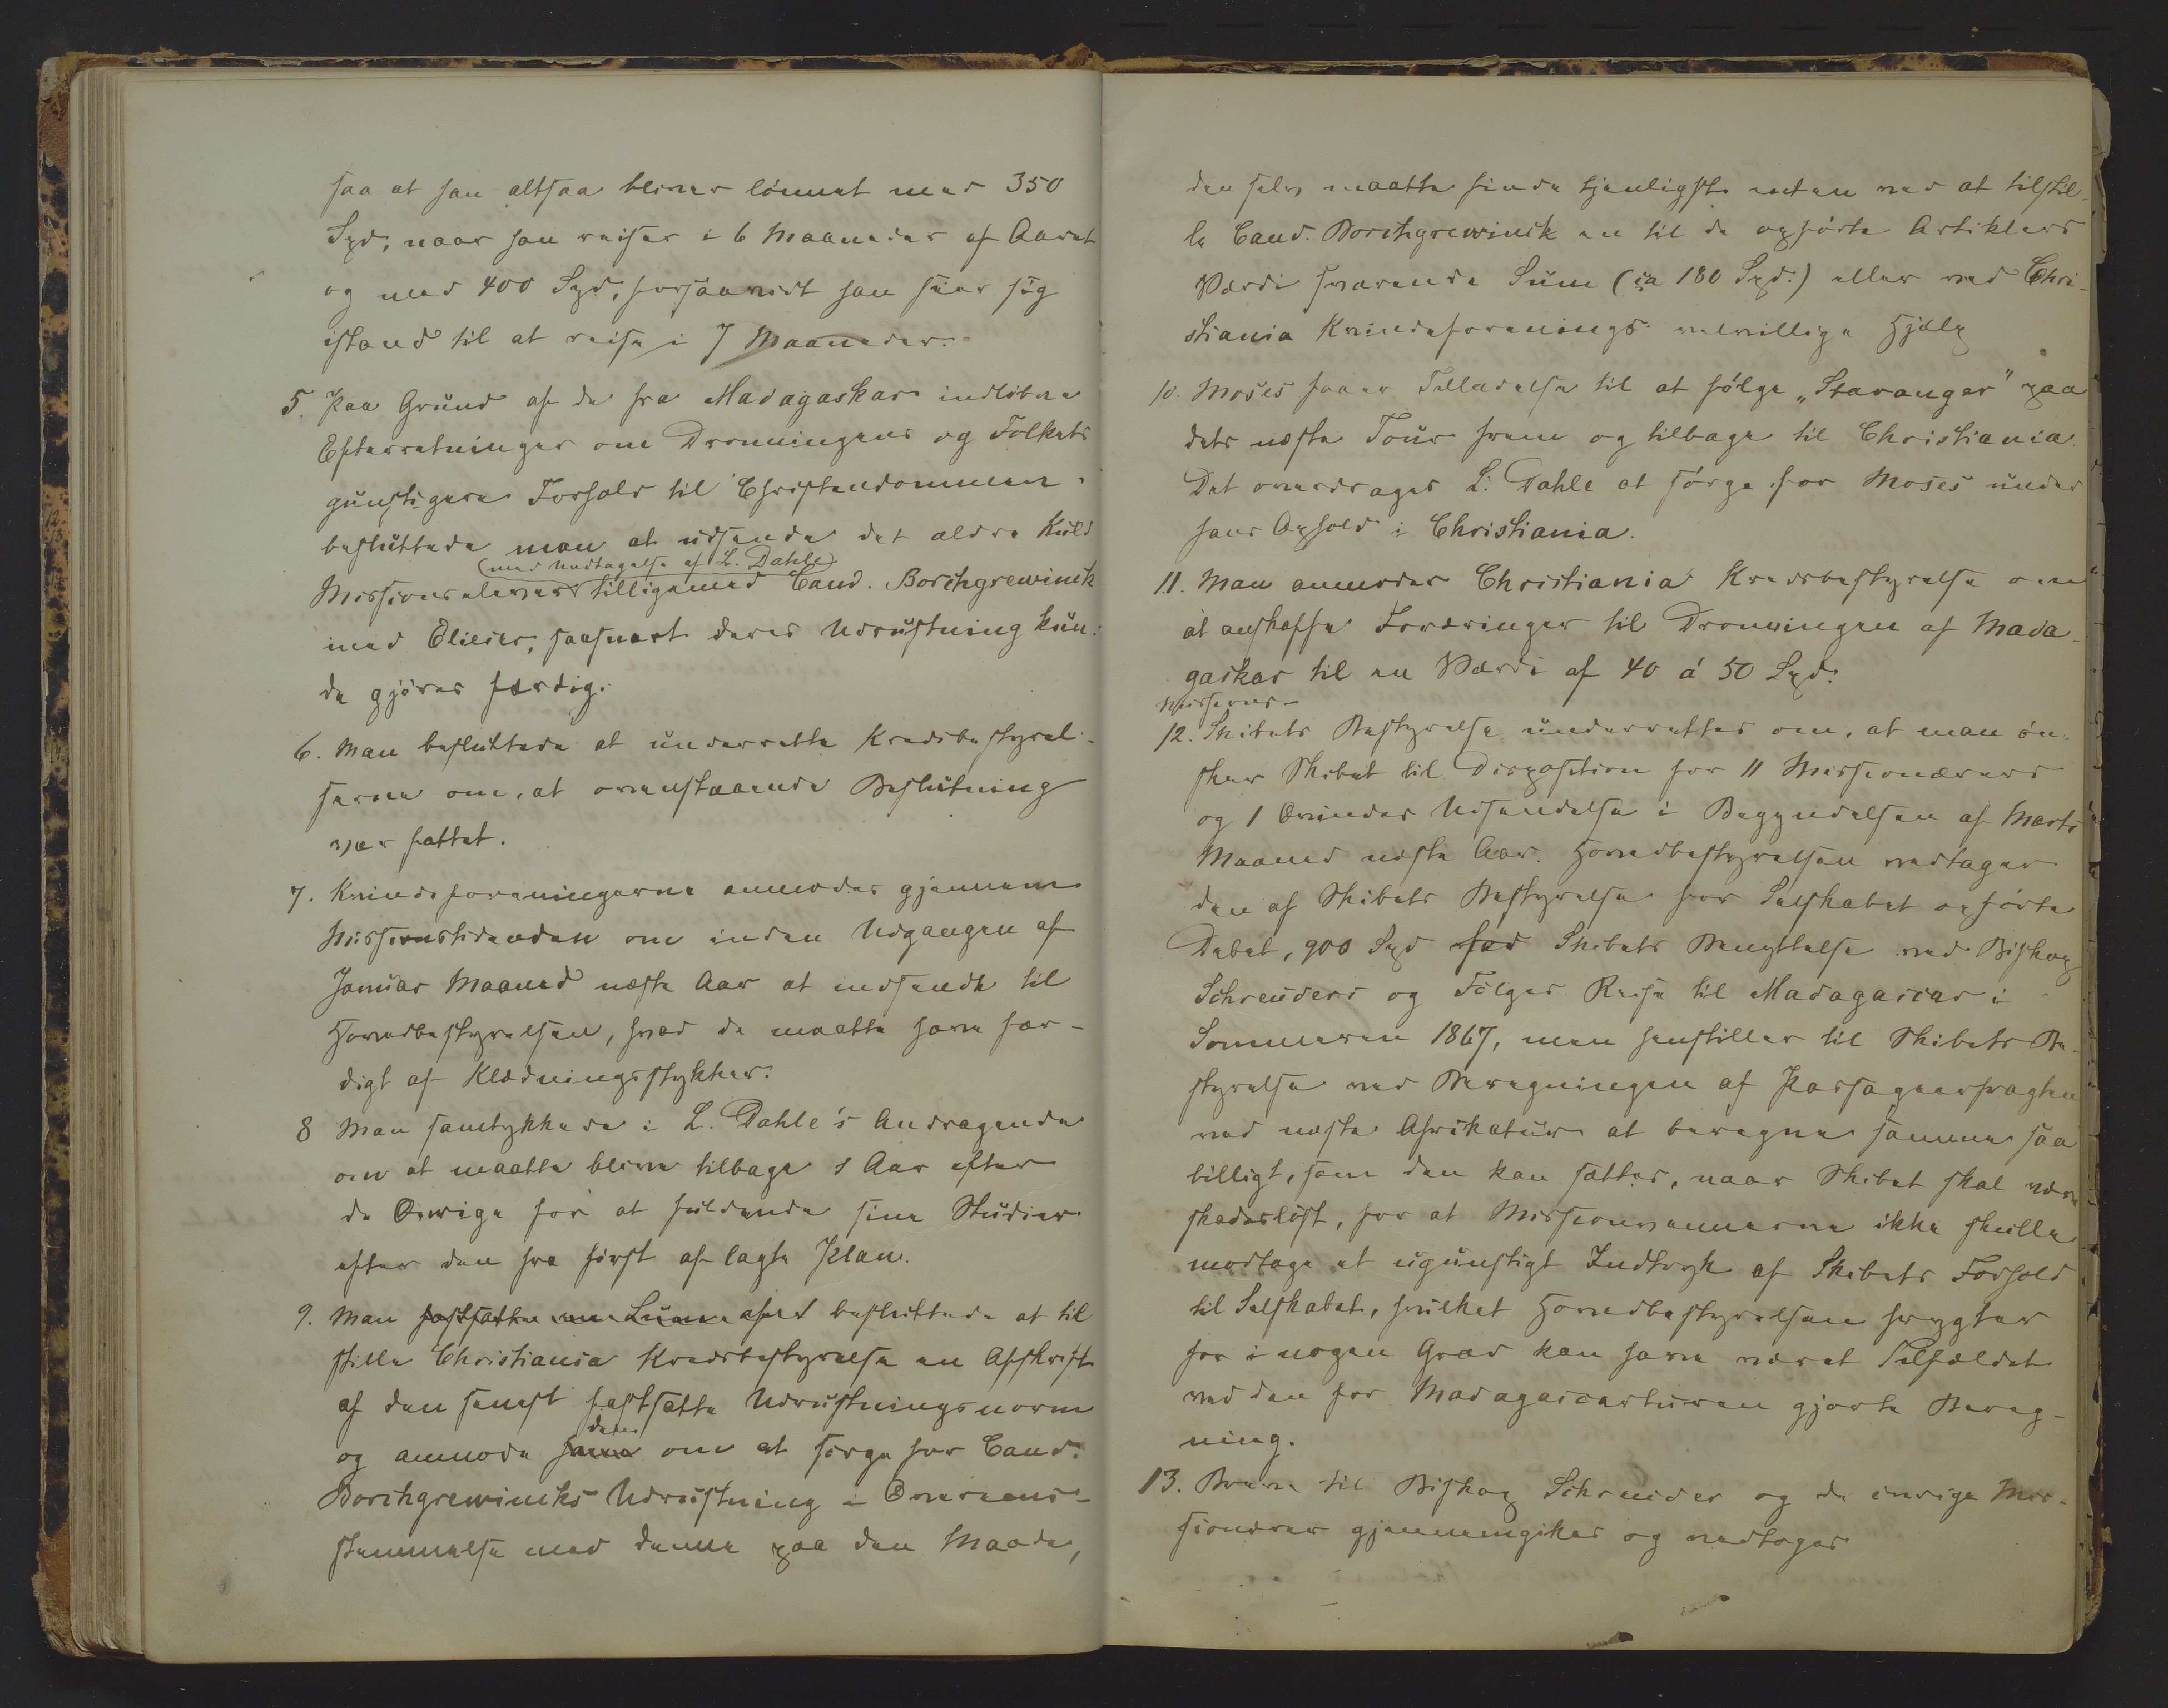 saa at han altsaa bliver lönnet med 350
Spd, naar han reiser i 6 Maaneder af Aaret
og med 400 Spd, forsaavidt han seer sig
istand til at reise i 7 Maaneder.
5. Paa Grund af de fra Madagaskar indløbne
Efterretninger om Dronningens og Folkets
gunstigere Forhold til Christendommen,
besluttede man at udsende det ældre Kuld
(med Undtagelse af L. Dahle)
Missionselever tilligemed Cand. Borchgrewinck
med Elieser, saasnart deres Udrustning kun-
de gjöres færdig.
6. Man besluttede at underrette Kredsbestyrel-
serne om, at ovenstaaende Beslutning
var fattet.
7. Kvindeforeningerne anmodes gjennem
Missionstidenden om inden Udgangen af
Januar Maaned næste Aar at indsende til
Hovedbestyrelsen, hvad de maatte have fær-
digt af Klædningsstykker.
8 Man samtykkede i L. Dahle's Andragende
om at maatte blive tilbage 1 Aar efter
de Øvrige for at fuldende sine Studier
efter den fra först af lagte Plan.
9. Man fastsatte en Sum af besluttede at til
stille Christiania Kredsbestyrelse en Afskrift
af den senest fastsatte Udrustningsnorm
denne
og anmode om at sörge for Cand.
Borchgrewincks Udrustning i Overens-
stemmelse med denne paa den Maade,
den selv maatte finde tjenligst enten ved at tilstil-
le Cand. Borchgrewinck en til de opförte Artiklers
Værdi svarende Sum (ca 180 Spd.) eller ved Chri-
stiania Kvindeforenings velvillige Hjælp
10. Moses faaer Tilladelse til at fölge „Stavanger" paa
dets næste Tour frem og tilbage til Christiania.
Det overdrages L. Dahle at sörge for Moses under
hans Ophold i Christiania.
11. Man anmoder Christiania Kredsbestyrelse om
at anskaffe Foræringer til Dronningen af Mada-
gaskar til en Værdi af 40 á 50 Spd.
Missions-
12. Skibets Bestyrelse underrettes om, at man ön-
sker Skibet til Disposition for 11 Missionærers
og 1 Qvindes Udsendelse i Begyndelsen af Marts
Maaned næste Aar. Hovedbestyrelsen vedtager
den af Skibets Bestyrelse for Selskabet opförte
Debet, 900 Spd for Skibets Benyttelse ved Biskop
Schreuders og Fölges Reise til Madagascar i
Sommeren 1867, men henstiller til Skibets Be-
styrelse ved Beregningen af Passageerfragten
ved næste Afrikatur at beregne samme saa
billigt, som den kan sættes, naar Skibet skal være
skadeslöst, for at Missionsvennerne ikke skulle
modtage et ugunstigt Indtryk af Skibets Forhold
til Selskabet, hvilket Hovedbestyrelsen frygter
for i nogen Grad kan have været Tilfældet
ved den for Madagascarturen gjorte Bereg-
ning.
13. Breve til Biskop Schreuder og de övrige Mis-
sionærer gjennemgikes og vedtoges